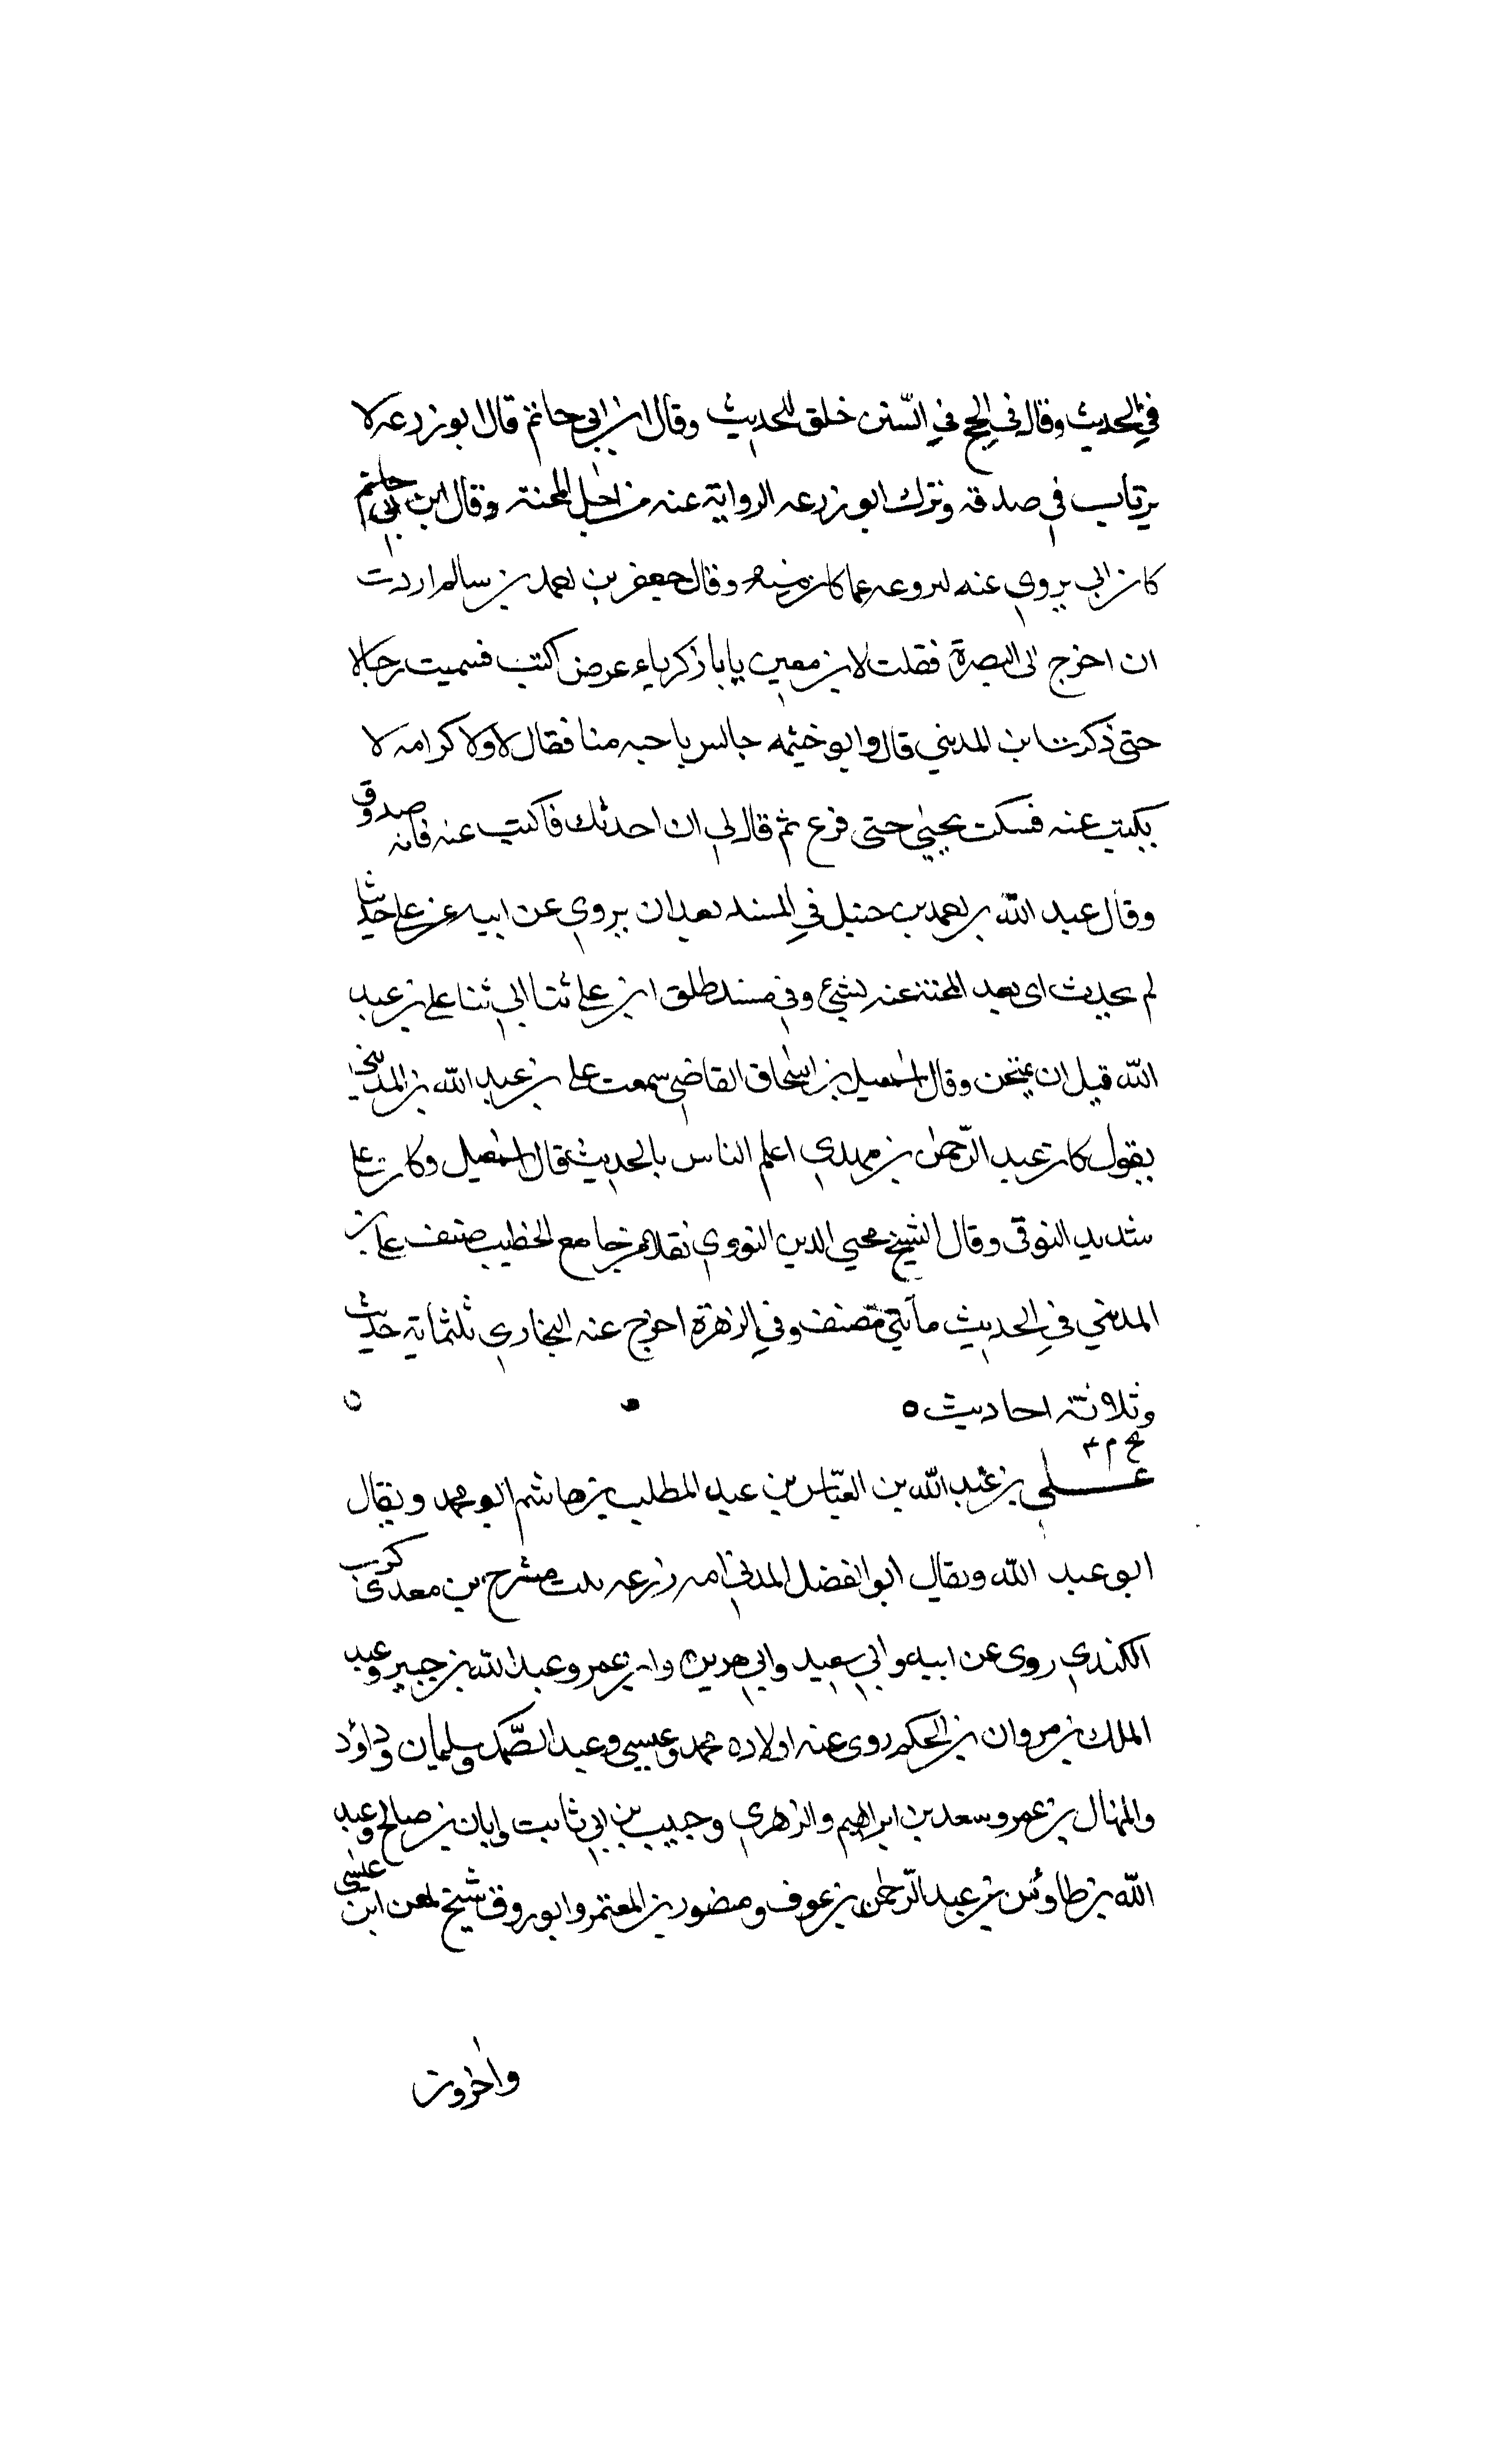 في الحديث وقال في الحج في السنن خلق للحديث وقال ابن ابي حاتم قال ابو زرعه لا
يرتاب في صدقه وترك ابو زرعه الرواية عنه من اجل المحنة وقال ابن ابي حاتم
كان ابي يروي عنه لنزوعه عما كان منه وقال جعفر بن احمد بن سالم اردت
ان اخرج الى البصرة فقلت لابن معين يابا زكرياء عرض اكتب فسميت رجالا
حتى ذكرت ابن المديني قال وابو خيثمه جالس ناحيه منا فقال لا ولا كرامه لا
يكتب عنه فسكت يحيي حتى فرغ ثم قال لي ان احدثك فاكتب عنه فانه صدوق
وقال عبد الله بن احمد بن حنبل في المسند بعد ان يروي عن ابيه عن علي حديثا
لم يحدث اى بعد المحنة عنه بشيء وفي مسند طلق ابن علي ثنا ابي ثنا علي بن عبد
الله قبل ان يمتحن وقال اسمعيل بن اسحاق القاضي سمعت علي بن عبد الله بن المديني
يقول كان عبد الرحمن بن مهدي اعلم الناس بالحديث قال اسمعيل وكان علي
شديد التوقي وقال الشيخ محيي الدين النووي نقلا من جامع الخطيب صنف علي بن
المديني في الحديث مأتي مصنف وفي الزهرة اخرج عنه البخاري ثلثماية حديث
وثلاثة احاديث ه
بخ م ٤
علي بن عبد الله بن العباس بن عبد المطلب بن هاشم ابو محمد ويقال
ابو عبد الله ويقال ابو الفضل المدني امه زرعه بنت مشرح بن معدى كرب
الكندي روى عن ابيه وابي سعيد وابي هريرة وابن عمر وعبد الله بن جبير وعبد
الملك بن مروان بن الحكم روى عنه اولاده محمد وعيسى وعبد الصمد وسليمان وداؤد
والمنهال بن عمرو وسعد بن ابراهيم والزهري وحبيب بن ابي ثابت وابان بن صالح وعبد
الله بن طاوس بن عبد الرحمن بن عوف ومنصور بن المعتمر وابو روق شيخ لمعن ابن عيسى
واخرون